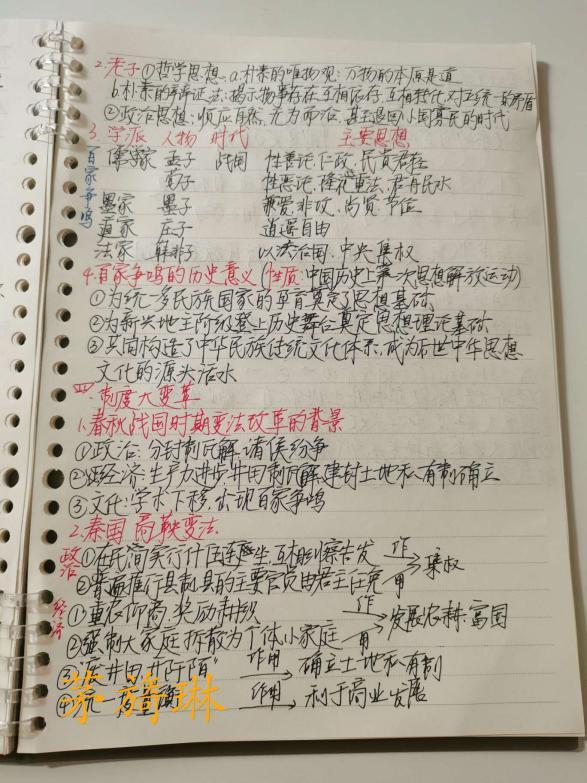 2.老子①哲学思想 a.朴素的唯物观:万物的本原是道
b.朴素的辩证法:揭示物事存在互相依存,互相转化,对立统一的矛盾
②政治思想:顺应自然,无为而治,甚至退回小国寡民的时代
3.学派 人物 时代 主要思想
百家争鸣
儒家 孟子 战国 性善论,仁政,民贵君轻
荀子 性恶论,隆礼重法,君舟民水
墨家 墨子 兼爱非攻,尚贤节俭
道家 庄子 逍遥自由
法家 韩非子 以法治国,中央集权
4.百家争鸣的历史意义(性质:中国历史上第一次思想解放运动)
①为统一多民族国家的孕育奠定了思想基础
②为新兴地主阶级登上历史舞台奠定思想理论基础
③共同构造了中华民族传统文化体系,成为后世中华思想
文化的源头活水
四.制度大变革
1.春秋战国时期变法改革的背景
①政治:分封制瓦解,诸侯纷争
②经济:生产力进步,井田制瓦解,封建土地私有制确立
③文化:学术下移,出现百家争鸣
2.秦国 商鞅变法
政治
①在民间实行什伍连坐,互相纠察告发 作用
集权
②普遍推行县制,县的主要官员由君主任免
经济
①重农抑商,奖励耕织 作用
发展农耕,富国
②强制大家庭拆散为个体小家庭
③"废井田,开阡陌" 作用 确立土地私有制
④统一度量衡 作用 利于商业发展
茅旖琳